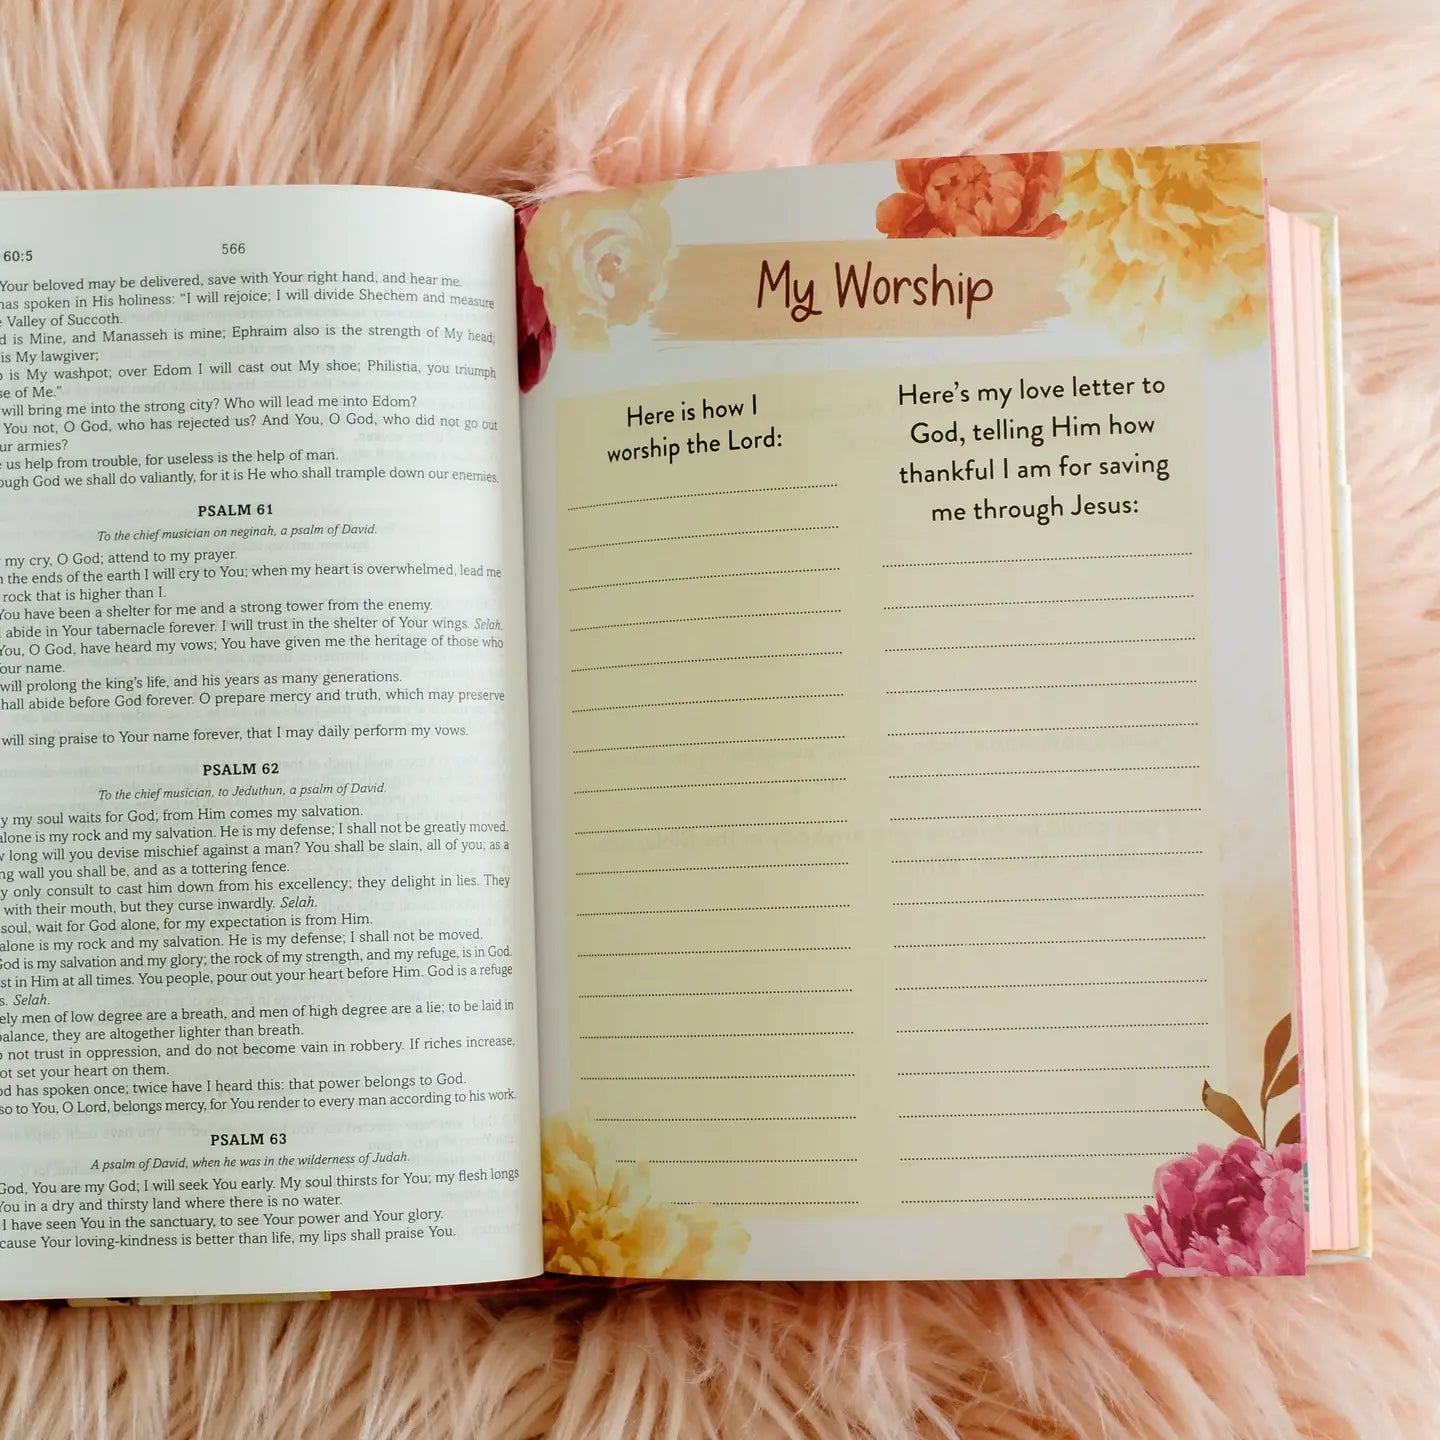 60:5
566
Your beloved may be delivered, save with Your right hand, and hear me.
has spoken in His holiness: “I will rejoice; I will divide Shechem and measure
Valley of Succoth.
is Mine, and Manasseh is mine; Ephraim also is the strength of My head;
is My lawgiver;
is My washpot; over Edom I will cast out My shoe; Philistia, you triumph
of Me.”
will bring me into the strong city? Who will lead me into Edom?
You not, O God, who has rejected us? And You, O God, who did not go out
armies?
us help from trouble, for useless is the help of man.
God we shall do valiantly, for it is He who shall trample down our enemies.
PSALM 61
To the chief musician on neginah, a psalm of David.
my cry, O God; attend to my prayer.
the ends of the earth I will cry to You; when my heart is overwhelmed, lead me
rock that is higher than I.
You have been a shelter for me and a strong tower from the enemy.
abide in Your tabernacle forever. I will trust in the shelter of Your wings. Selah.
You, O God, have heard my vows; You have given me the heritage of those who
your name.
will prolong the king’s life, and his years as many generations.
shall abide before God forever. O prepare mercy and truth, which may preserve
will sing praise to Your name forever, that I may daily perform my vows.
PSALM 62
To the chief musician, to Jeduthun, a psalm of David.
my soul waits for God; from Him comes my salvation.
alone is my rock and my salvation. He is my defense; I shall not be greatly moved.
long will you devise mischief against a man? You shall be slain, all of you; as a
wall you shall be, and as a tottering fence.
only consult to cast him down from his excellency; they delight in lies. They
with their mouth, but they curse inwardly. Selah.
soul, wait for God alone, for my expectation is from Him.
alone is my rock and my salvation. He is my defense; I shall not be moved.
God is my salvation and my glory; the rock of my strength, and my refuge, is in God.
in Him at all times. You people, pour out your heart before Him. God is a refuge
Selah.
men of low degree are a breath, and men of high degree are a lie; to be laid in
balance, they are altogether lighter than breath.
not trust in oppression, and do not become vain in robbery. If riches increase,
set your heart on them.
has spoken once; twice have I heard this: that power belongs to God.
to You, O Lord, belongs mercy, for You render to every man according to his work.
PSALM 63
A psalm of David, when he was in the wilderness of Judah.
God, You are my God; I will seek You early. My soul thirsts for You; my flesh longs
You in a dry and thirsty land where there is no water.
I have seen You in the sanctuary, to see Your power and Your glory.
Your loving-kindness is better than life, my lips shall praise You.
My Worship
Here is how I
worship the Lord:
Here’s my love letter to
God, telling Him how
thankful I am for saving
me through Jesus: